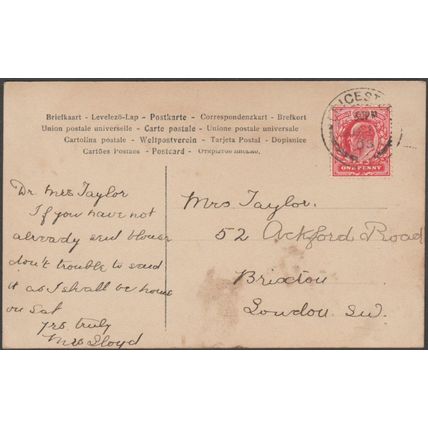 Briefkaart - Levelező-Lap - Postkarte - Correspondenzkart - Brefkort
Union postale universelle - Carte postale - Unione postale universale
Cartolina postale - Weltpostverein - Tarjeta Postal - Dopisnice
Cartões Postaes - Postcard - Открытое письмо.
ICEST
ONE PENNY
Dr. Mrs Taylor
If you have not
already send blouse
don't trouble to send
it as I shall be home
on Sat
yrs truly
Mrs Lloyd
Mrs Taylor.
52 Ackford Road
Brixton
London SW.